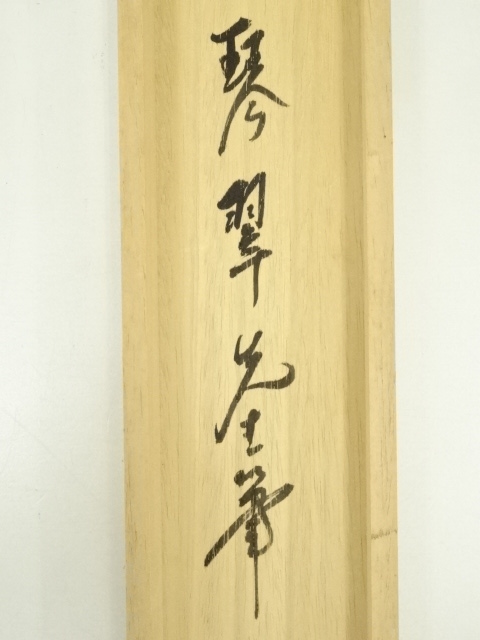 琴翠先生筆